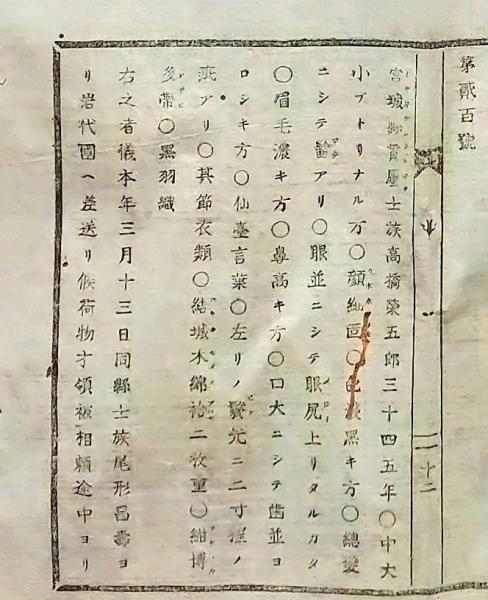 第貳百號
十二
宮城縣貫屬士族高橋榮五郎三十四五年〇中大
小ブトリナル方〇顔細面〇色淺黑キ方〇總髮
ニシテ髷アリ〇眼並ニシテ眼尻上リタルカタ
〇眉毛濃キ方〇鼻高キ方〇口大ニシテ歯並ヨ
ロシキ方〇仙臺言葉〇左リノ鬢先ニ二寸程ノ
疵アリ〇其節衣類〇結城木綿袷二枚重〇紺博
多帶〇黑羽織
右之者儀本年三月十三日同縣士族尾形昌壽ヨ
リ岩代國ヘ差送リ候荷物才領被相頼途中ヨリ